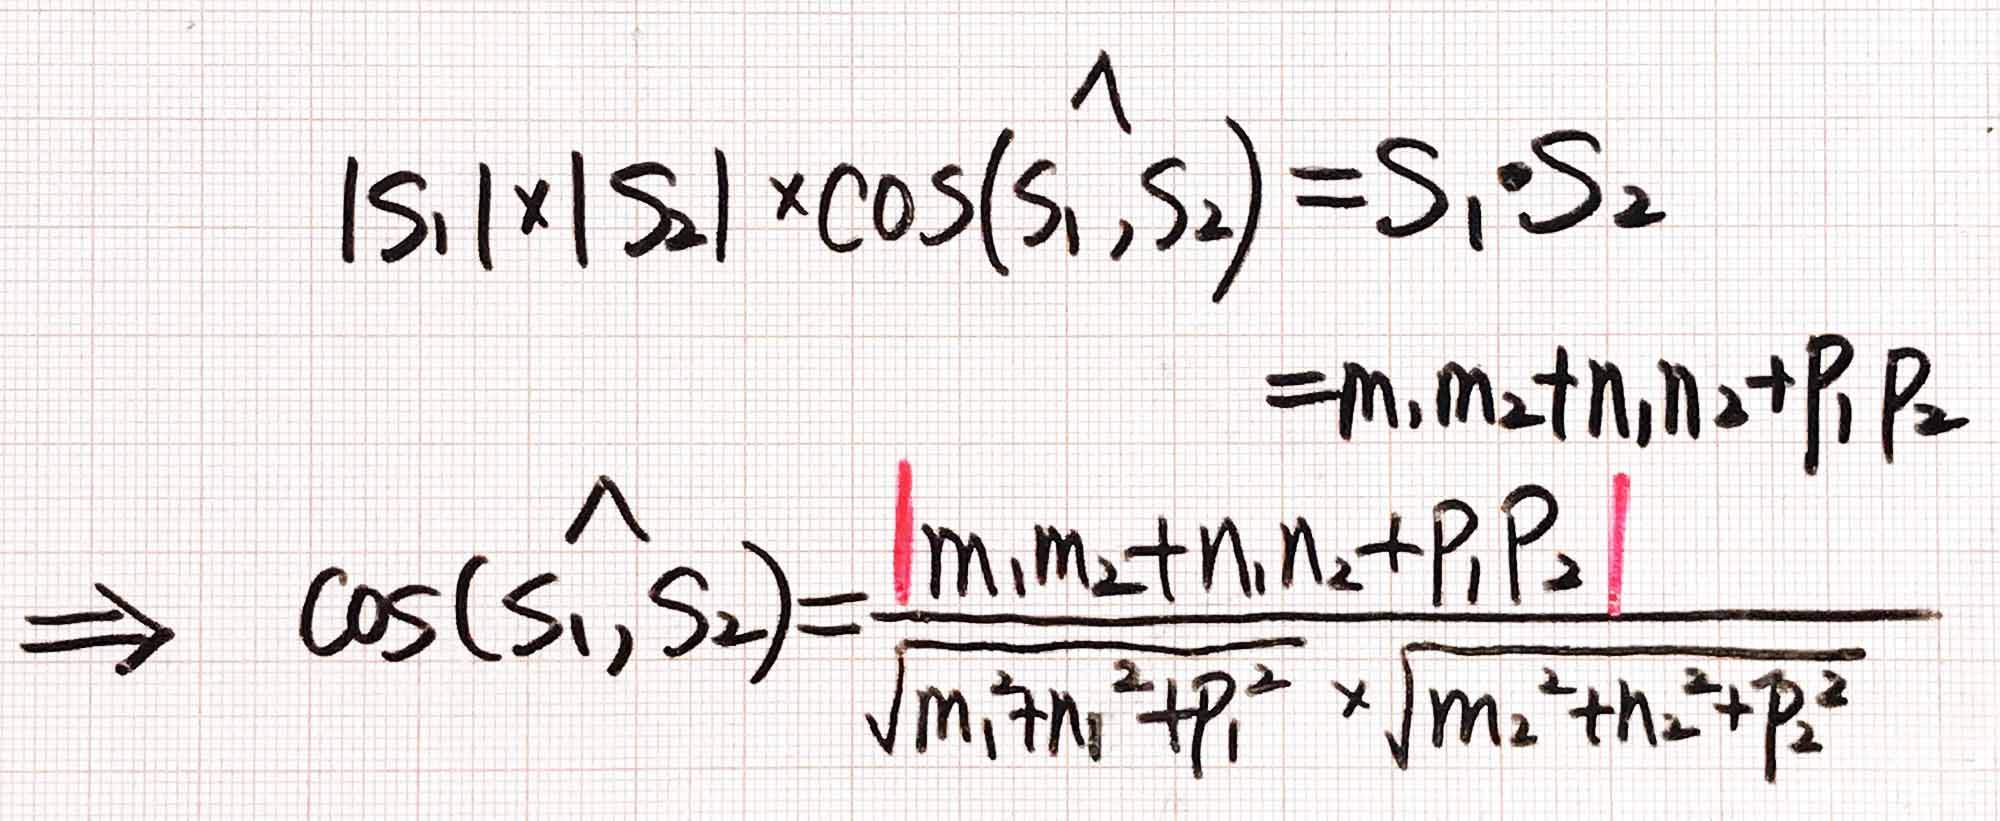 |S₁|×|S₂|×cos(S₁^,S₂)=S₁·S₂
=m₁m₂+n₁n₂+p₁p₂
⇒ cos(S₁^,S₂)=|m₁m₂+n₁n₂+p₁p₂|/(√(m₁²+n₁²+p₁²)×√(m₂²+n₂²+p₂²))